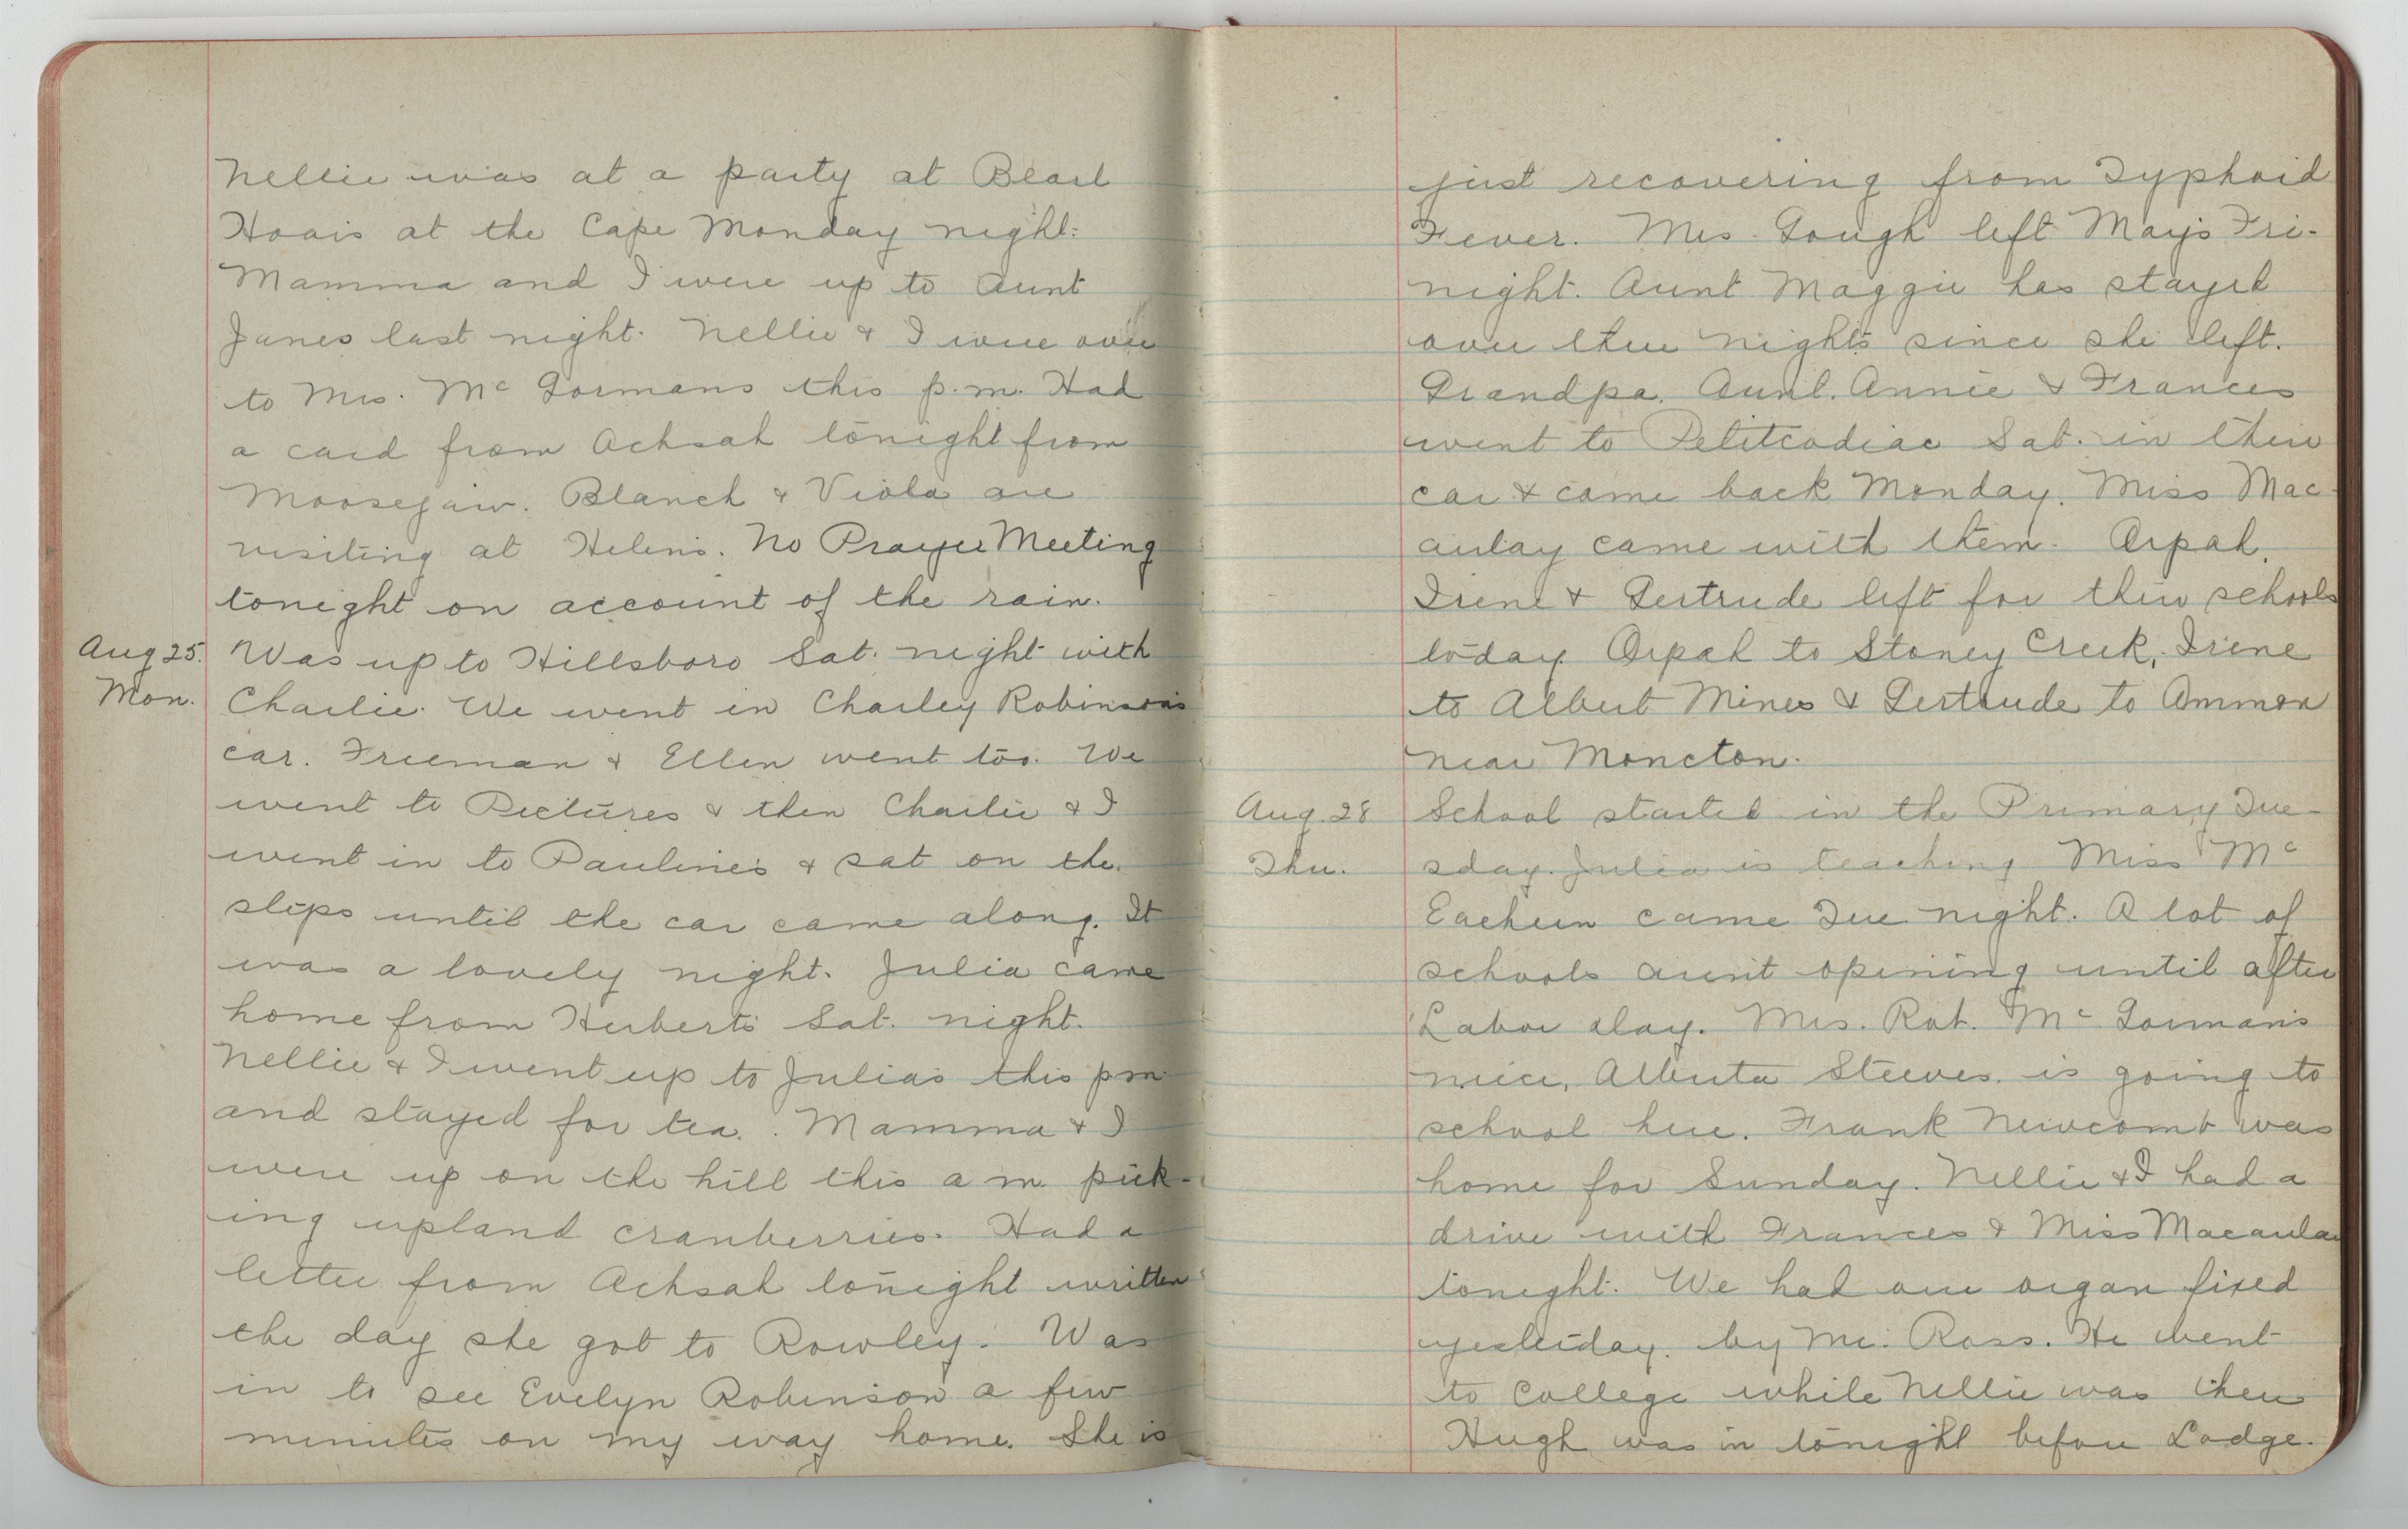 Nellie was at a party at Pearl
Hoars at the Cape Monday night.
Mamma and I were up to Aunt
Janes last night. Nellie & I were over
to Mrs. Mc Gormans this p.m. Had
a card from Achsah tonight from
Moosejaw. Blanch & Viola are
visiting at Helen's. No Prayer Meeting
tonight on account of the rain.
Aug 25. Was up to Hillsboro Sat. night with
Mon. Charlie. We went in Charley Robinson's
car. Freeman & Ellen went too. We
went to Pictures & then Charlie & I
went in to Pauline's & sat on the
steps until the car came along. It
was a lovely night. Julia came
home from Herberts Sat. night.
Nellie & I went up to Julia's this pm
and stayed for tea. Mamma & I
were up on the hill this a m. pick-
ing upland cranberries. Had a
letter from Achsah tonight written
the day she got to Rowley. Was
in to see Evelyn Robinson a few
minutes on my way home. She is
just recovering from Typhoid
Fever. Mrs. Gough left May's Fri-
night. Aunt Maggie has stayed
over there nights since she left.
Grandpa, Aunt Annie & Frances
went to Petitcodiac Sat. in their
car & came back Monday. Miss Mac-
aulay came with them. Orpah,
Irene & Gertrude left for their schools
today. Orpah to Stoney Creek, Irene
to Albert Mines & Gertrude to Ammon
near Moncton.
Aug. 28 School started in the Primary Tue-
Thu. sday. Julia is teaching Miss Mc
Eachern came Tue night. A lot of
schools aren't opening until after
Labor day. Mrs. Rob. Mc Gorman's
niece, Alberta Steeves is going to
school here. Frank Newcomb was
home for Sunday. Nellie & I had a
drive with Frances & Miss Macaulay
tonight. We had our organ fixed
yesterday by Mr. Ross. He went
to College while Nellie was there
Hugh was in tonight before Lodge.